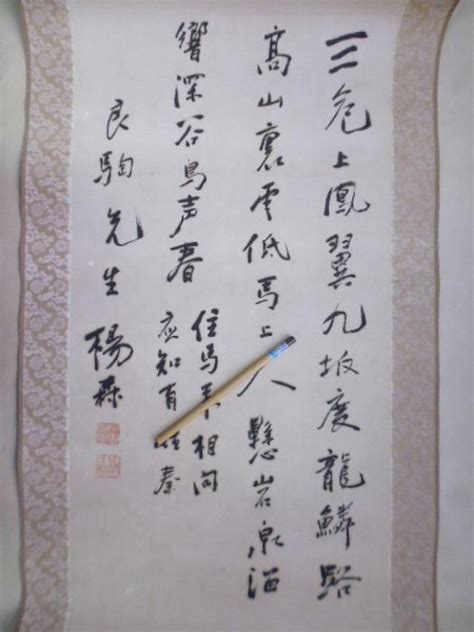 三危上鳳翼九坂度龍鱗路
高山裏雲低馬上人懸岩泉溜
響深谷鳥声春
住馬相问
应知有秦
良駒先生 楊森